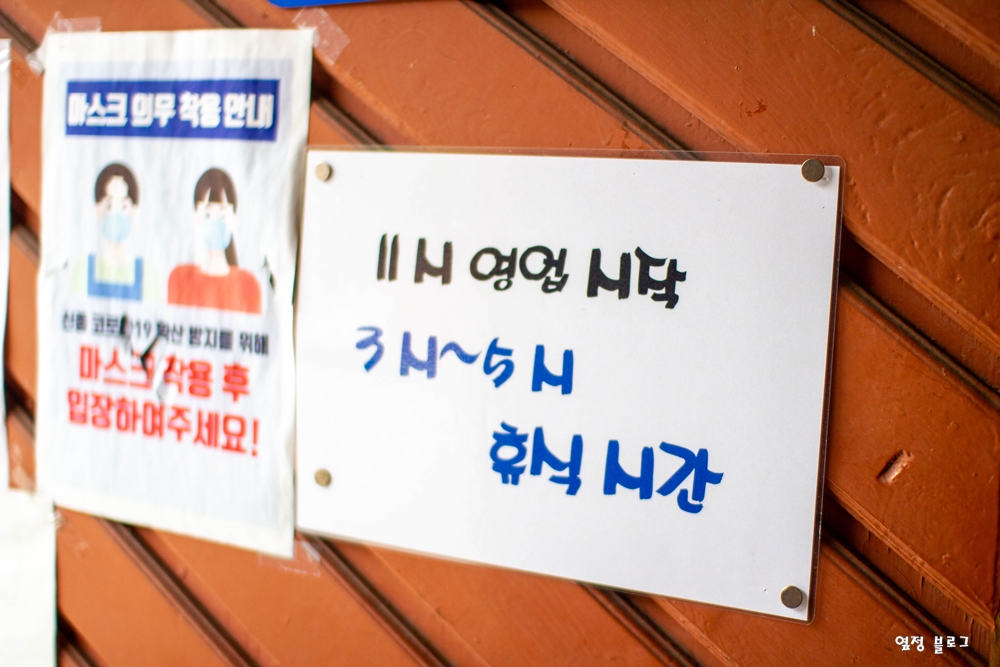 마스크 의무 착용 안내
신종 코로나19 확산 방지를 위해
마스크 착용 후
입장하여주세요!
11시 영업 시작
3시~5시
휴식 시간
옆정 블로그